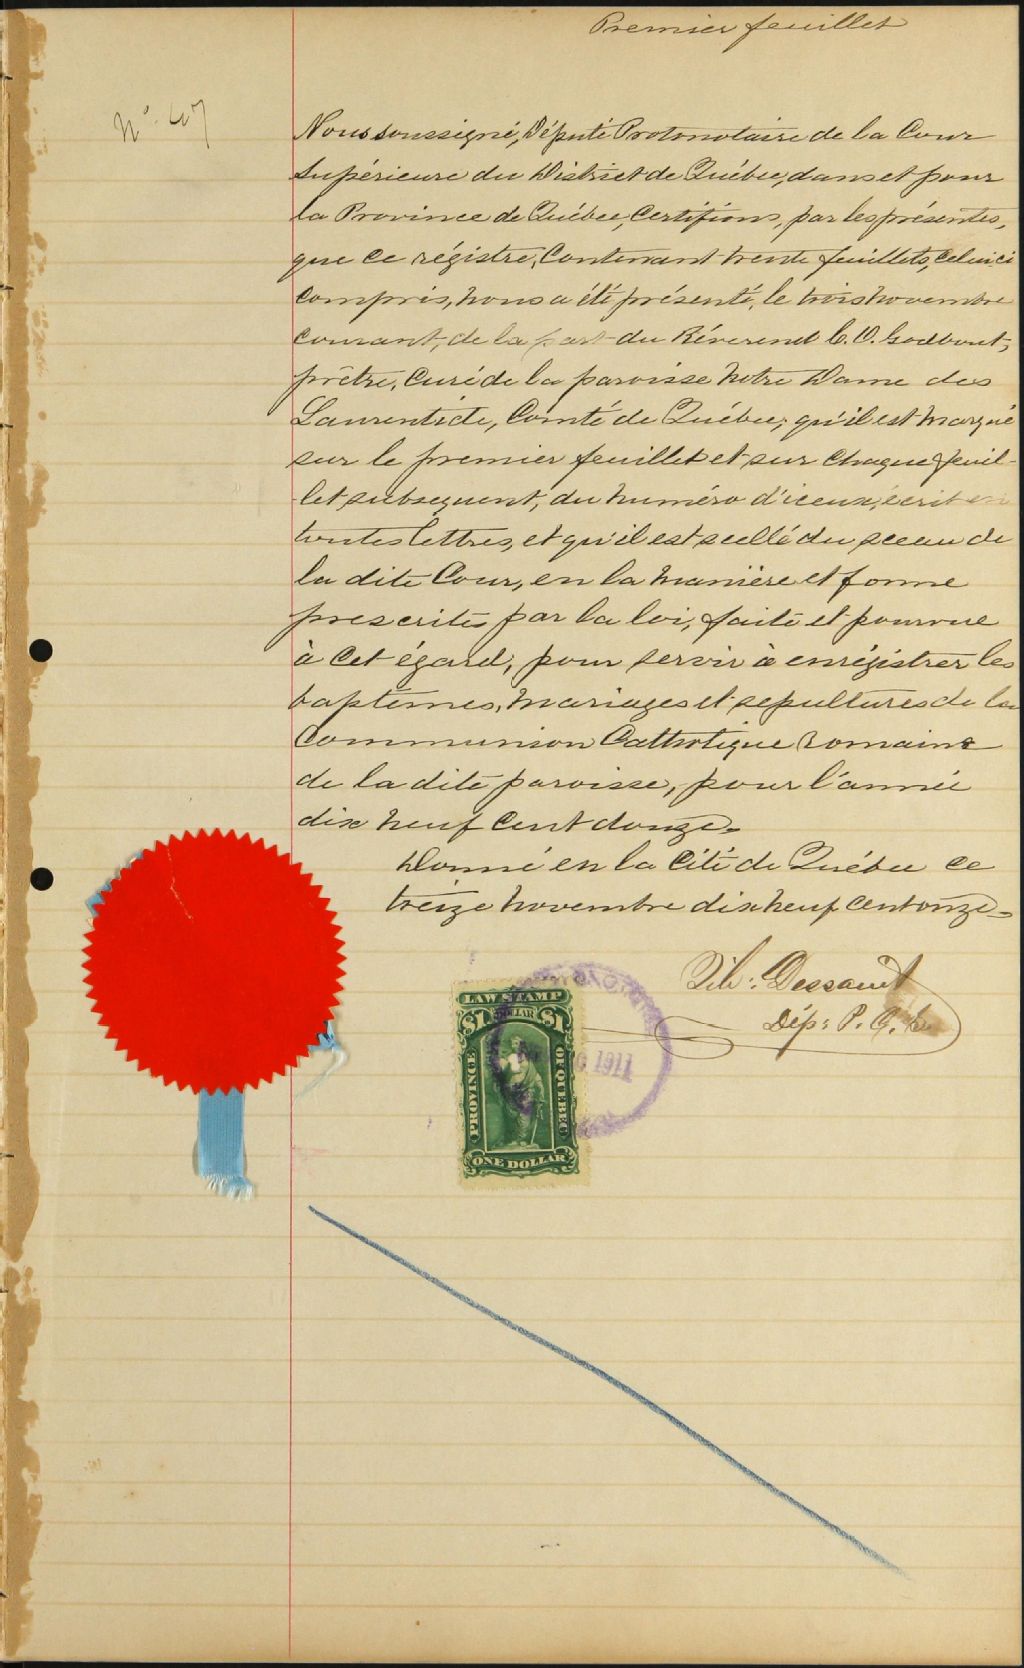 Premier feuillet
No. 47
Nous soussigné, Député Protonotaire de la Cour
Supérieure du District de Québec, dans et pour
la Province de Québec, Certifions, par les présentes,
que ce régistre, Contenant trente feuillets, celui-ci
compris, nous a été présenté, le trois novembre
courant, de la part du Révérend C. O. Godbout,
prêtre, Curé de la paroisse Notre Dame des
Laurentide, Comté de Québec; qu'il est marqué
sur le premier feuillet et sur chaque feuil-
let subsequent, du numéro d'iceux, écrit en
toutes lettres, et qu'il est scellé du sceau de
la dite Cour, en la manière et forme
prescrites par la loi, faite et pourvue
à cet égard, pour servir à enrégistrer les
baptêmes, mariages et sepultures de la
Communion Catholique Romaine
de la dite paroisse, pour l'année
dix neuf cent douze.
Donné en la Cité de Québec ce
treize novembre dix neuf cent onze.
Dessault
Dép: P. C. S.
LAW STAMP
$1 DOLLAR $1
PROVINCE OF QUEBEC
ONE DOLLAR
1911